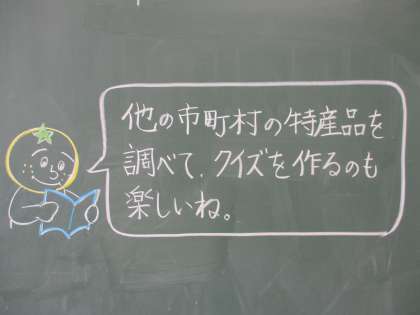 他の市町村の特産品を
調べて、クイズを作るのも
楽しいね。